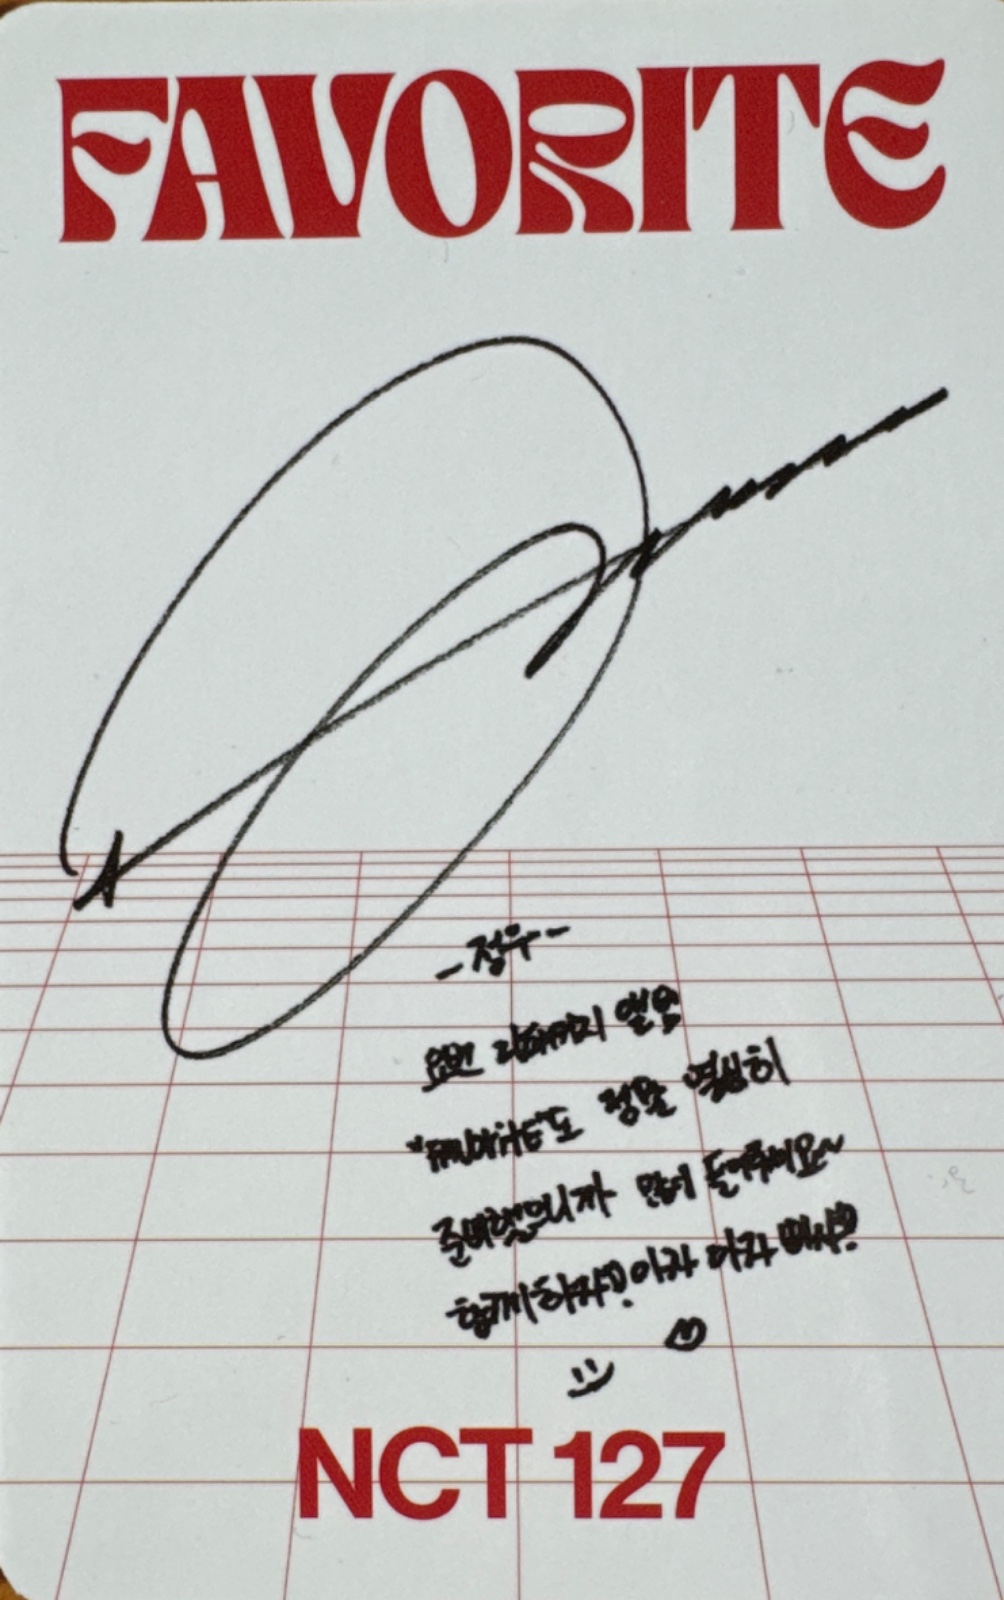 FAVORITE
-정우-
요번 리패키지 앨범
"FAVORITE"도 정말 열심히
준비했으니까 많이 들어주세요~
함께하자! 아자 아자 빠샤!
NCT 127